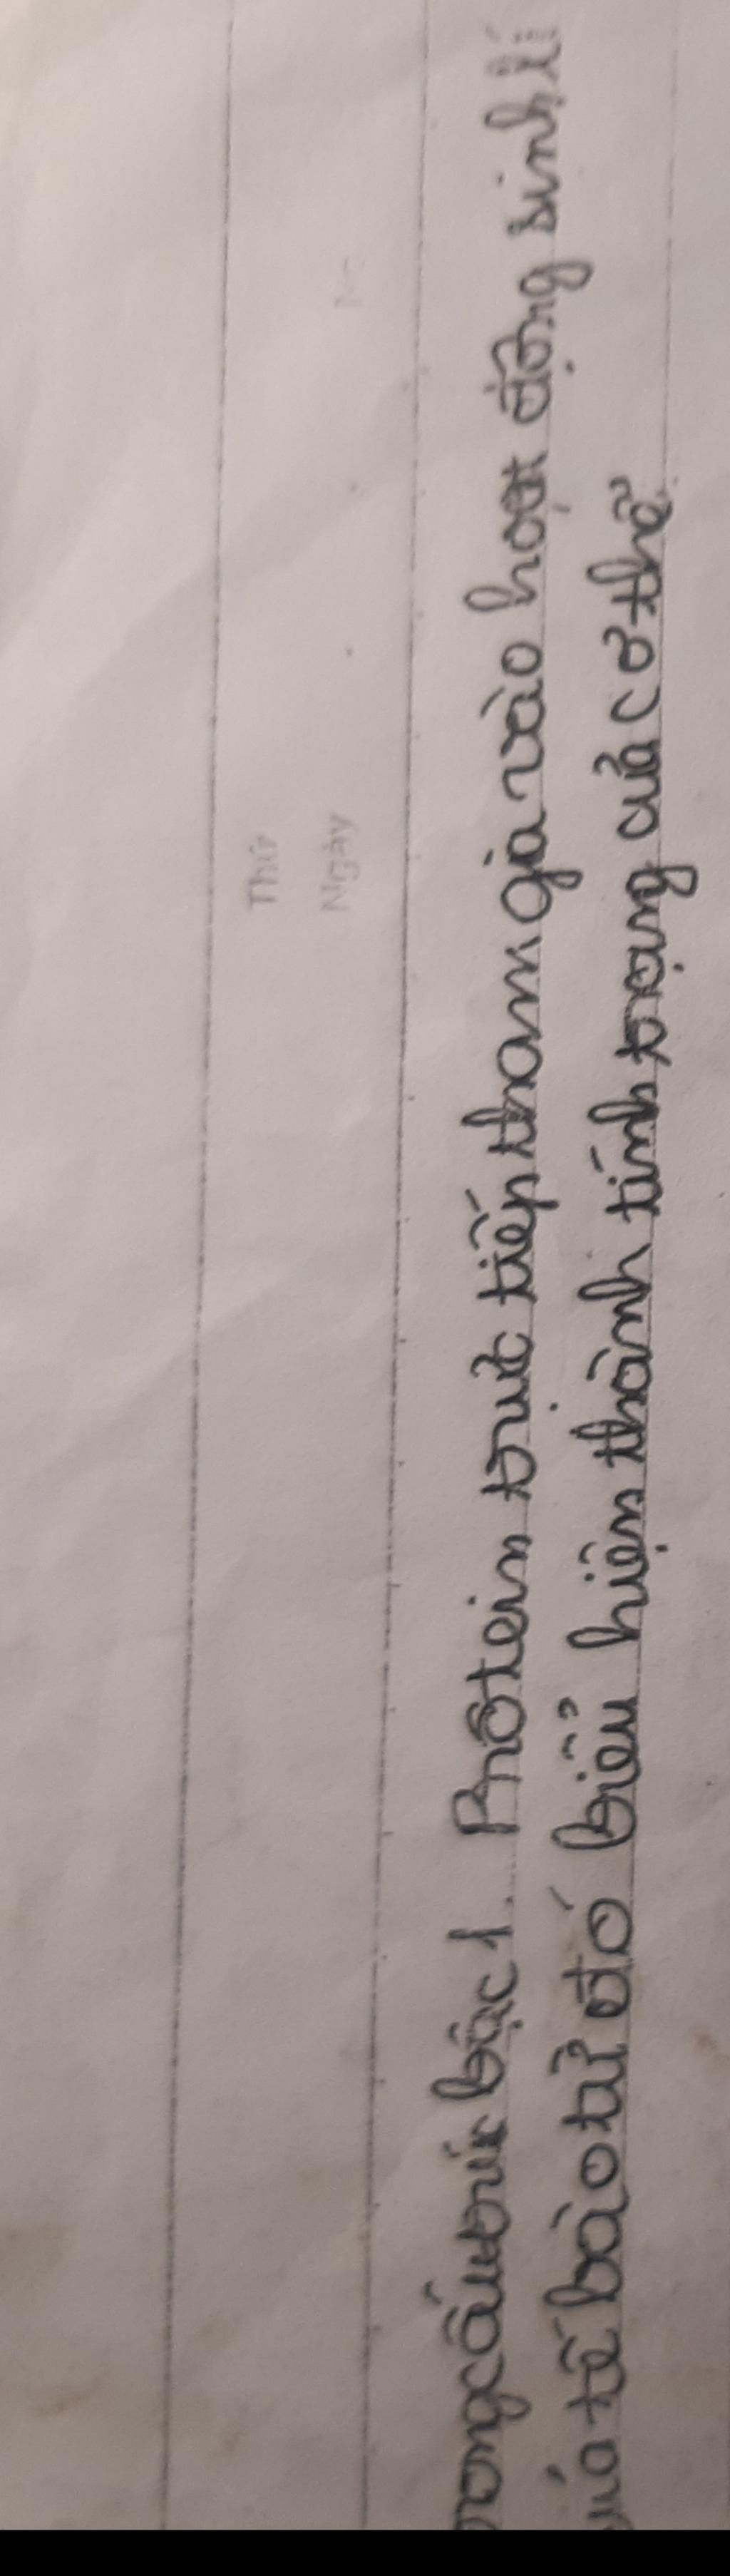 Thứ
Ngày
rong cấu trúc bậc 1. Prôtêin trực tiếp tham gia vào hoạt động sinh lí
tế bào từ đó biểu hiện thành tính trạng củả cơ thể